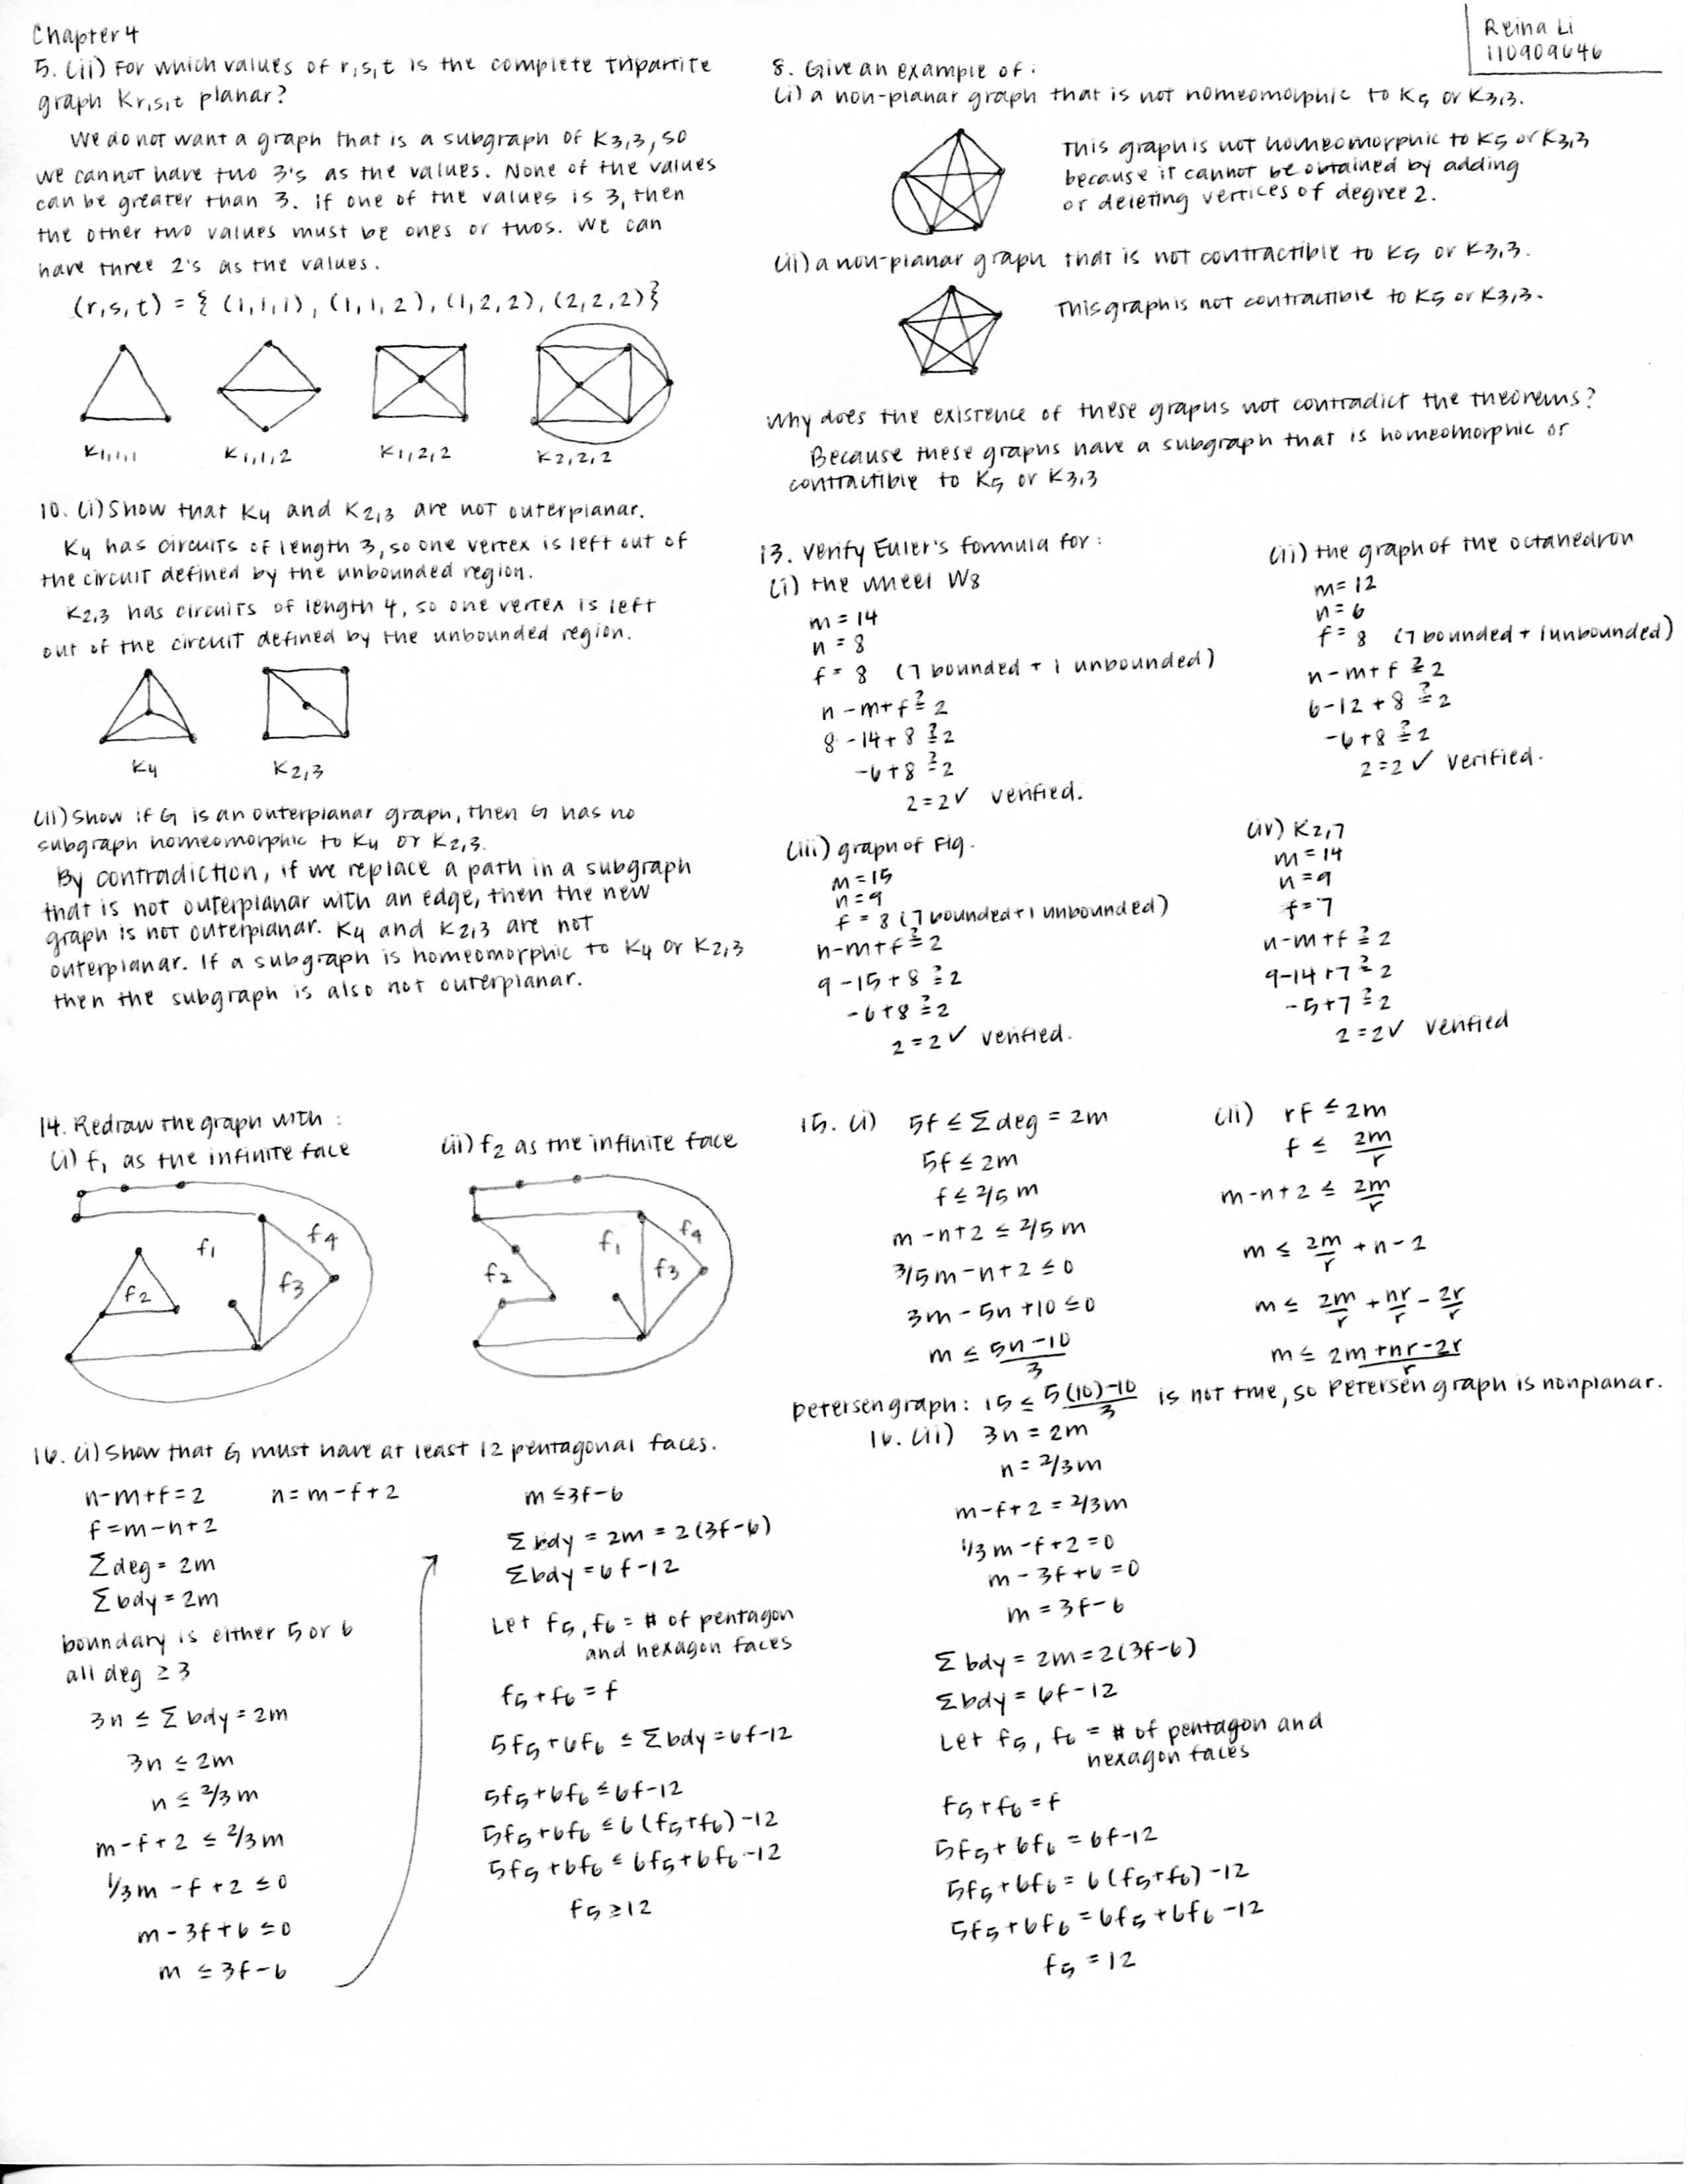 Reina Li
110909646
Chapter 4
5. (ii) For which values of r,s,t is the complete tripartite
graph Kr,s,t planar?
We do not want a graph that is a subgraph of K3,3, so
we cannot have two 3's as the values. None of the values
can be greater than 3. If one of the values is 3, then
the other two values must be ones or twos. We can
have three 2's as the values.
(r,s,t) = { (1,1,1), (1,1,2), (1,2,2), (2,2,2)}
K1,1,1 K1,1,2 K1,2,2 K2,2,2
10. (i) Show that K4 and K2,3 are not outerplanar.
K4 has circuits of length 3, so one vertex is left out of
the circuit defined by the unbounded region.
K2,3 has circuits of length 4, so one vertex is left
out of the circuit defined by the unbounded region.
K4 K2,3
(ii) Show if G is an outerplanar graph, then G has no
subgraph homeomorphic to K4 or K2,3.
By contradiction, if we replace a path in a subgraph
that is not outerplanar with an edge, then the new
graph is not outerplanar. K4 and K2,3 are not
outerplanar. If a subgraph is homeomorphic to K4 or K2,3
then the subgraph is also not outerplanar.
8. Give an example of:
(i) a non-planar graph that is not homeomorphic to K5 or K3,3.
This graph is not homeomorphic to K5 or K3,3
because it cannot be obtained by adding
or deleting vertices of degree 2.
(ii) a non-planar graph that is not contractible to K5 or K3,3.
This graph is not contractible to K5 or K3,3.
Why does the existence of these graphs not contradict the theorems?
Because these graphs have a subgraph that is homeomorphic or
contractible to K5 or K3,3
13. Verify Euler's formula for:
(i) the wheel W8
m = 14
n = 8
f = 8 (7 bounded + 1 unbounded)
n - m + f ≟ 2
8 - 14 + 8 ≟ 2
-6 + 8 ≟ 2
2 = 2 ✓ verified.
(ii) the graph of the octahedron
m = 12
n = 6
f = 8 (7 bounded + 1 unbounded)
n - m + f ≟ 2
6 - 12 + 8 ≟ 2
-6 + 8 ≟ 2
2 = 2 ✓ verified.
(iii) graph of Fig.
m = 15
n = 9
f = 8 (7 bounded + 1 unbounded)
n - m + f ≟ 2
9 - 15 + 8 ≟ 2
-6 + 8 ≟ 2
2 = 2 ✓ verified.
(iv) K2,7
m = 14
n = 9
f = 7
n - m + f ≟ 2
9 - 14 + 7 ≟ 2
-5 + 7 ≟ 2
2 = 2 ✓ verified
14. Redraw the graph with:
(i) f1 as the infinite face
f1 f4
f2 f3
(ii) f2 as the infinite face
f1 f4
f2 f3
15. (i) 5f ≤ Σdeg = 2m
5f ≤ 2m
f ≤ 2/5 m
m - n + 2 ≤ 2/5 m
3/5 m - n + 2 ≤ 0
3m - 5n + 10 ≤ 0
m ≤ (5n - 10)/3
(ii) rf ≤ 2m
f ≤ 2m/r
m - n + 2 ≤ 2m/r
m ≤ 2m/r + n - 2
m ≤ 2m/r + nr/r - 2r/r
m ≤ (2m + nr - 2r)/r
petersen graph: 15 ≤ (5(10) - 10)/3 is not true, so Petersen graph is nonplanar.
16. (i) Show that G must have at least 12 pentagonal faces.
n - m + f = 2 n = m - f + 2
f = m - n + 2
Σ deg = 2m
Σ bdy = 2m
boundary is either 5 or 6
all deg ≥ 3
3n ≤ Σ bdy = 2m
3n ≤ 2m
n ≤ 2/3 m
m - f + 2 ≤ 2/3 m
1/3 m - f + 2 ≤ 0
m - 3f + 6 ≤ 0
m ≤ 3f - 6
m ≤ 3f - 6
Σ bdy = 2m = 2(3f - 6)
Σ bdy = 6f - 12
Let f5, f6 = # of pentagon
and hexagon faces
f5 + f6 = f
5f5 + 6f6 ≤ Σ bdy = 6f - 12
5f5 + 6f6 ≤ 6f - 12
5f5 + 6f6 ≤ 6(f5 + f6) - 12
5f5 + 6f6 ≤ 6f5 + 6f6 - 12
f5 ≥ 12
16. (ii) 3n = 2m
n = 2/3 m
m - f + 2 = 2/3 m
1/3 m - f + 2 = 0
m - 3f + 6 = 0
m = 3f - 6
Σ bdy = 2m = 2(3f - 6)
Σ bdy = 6f - 12
Let f5, f6 = # of pentagon and
hexagon faces
f5 + f6 = f
5f5 + 6f6 = 6f - 12
5f5 + 6f6 = 6(f5 + f6) - 12
5f5 + 6f6 = 6f5 + 6f6 - 12
f5 = 12